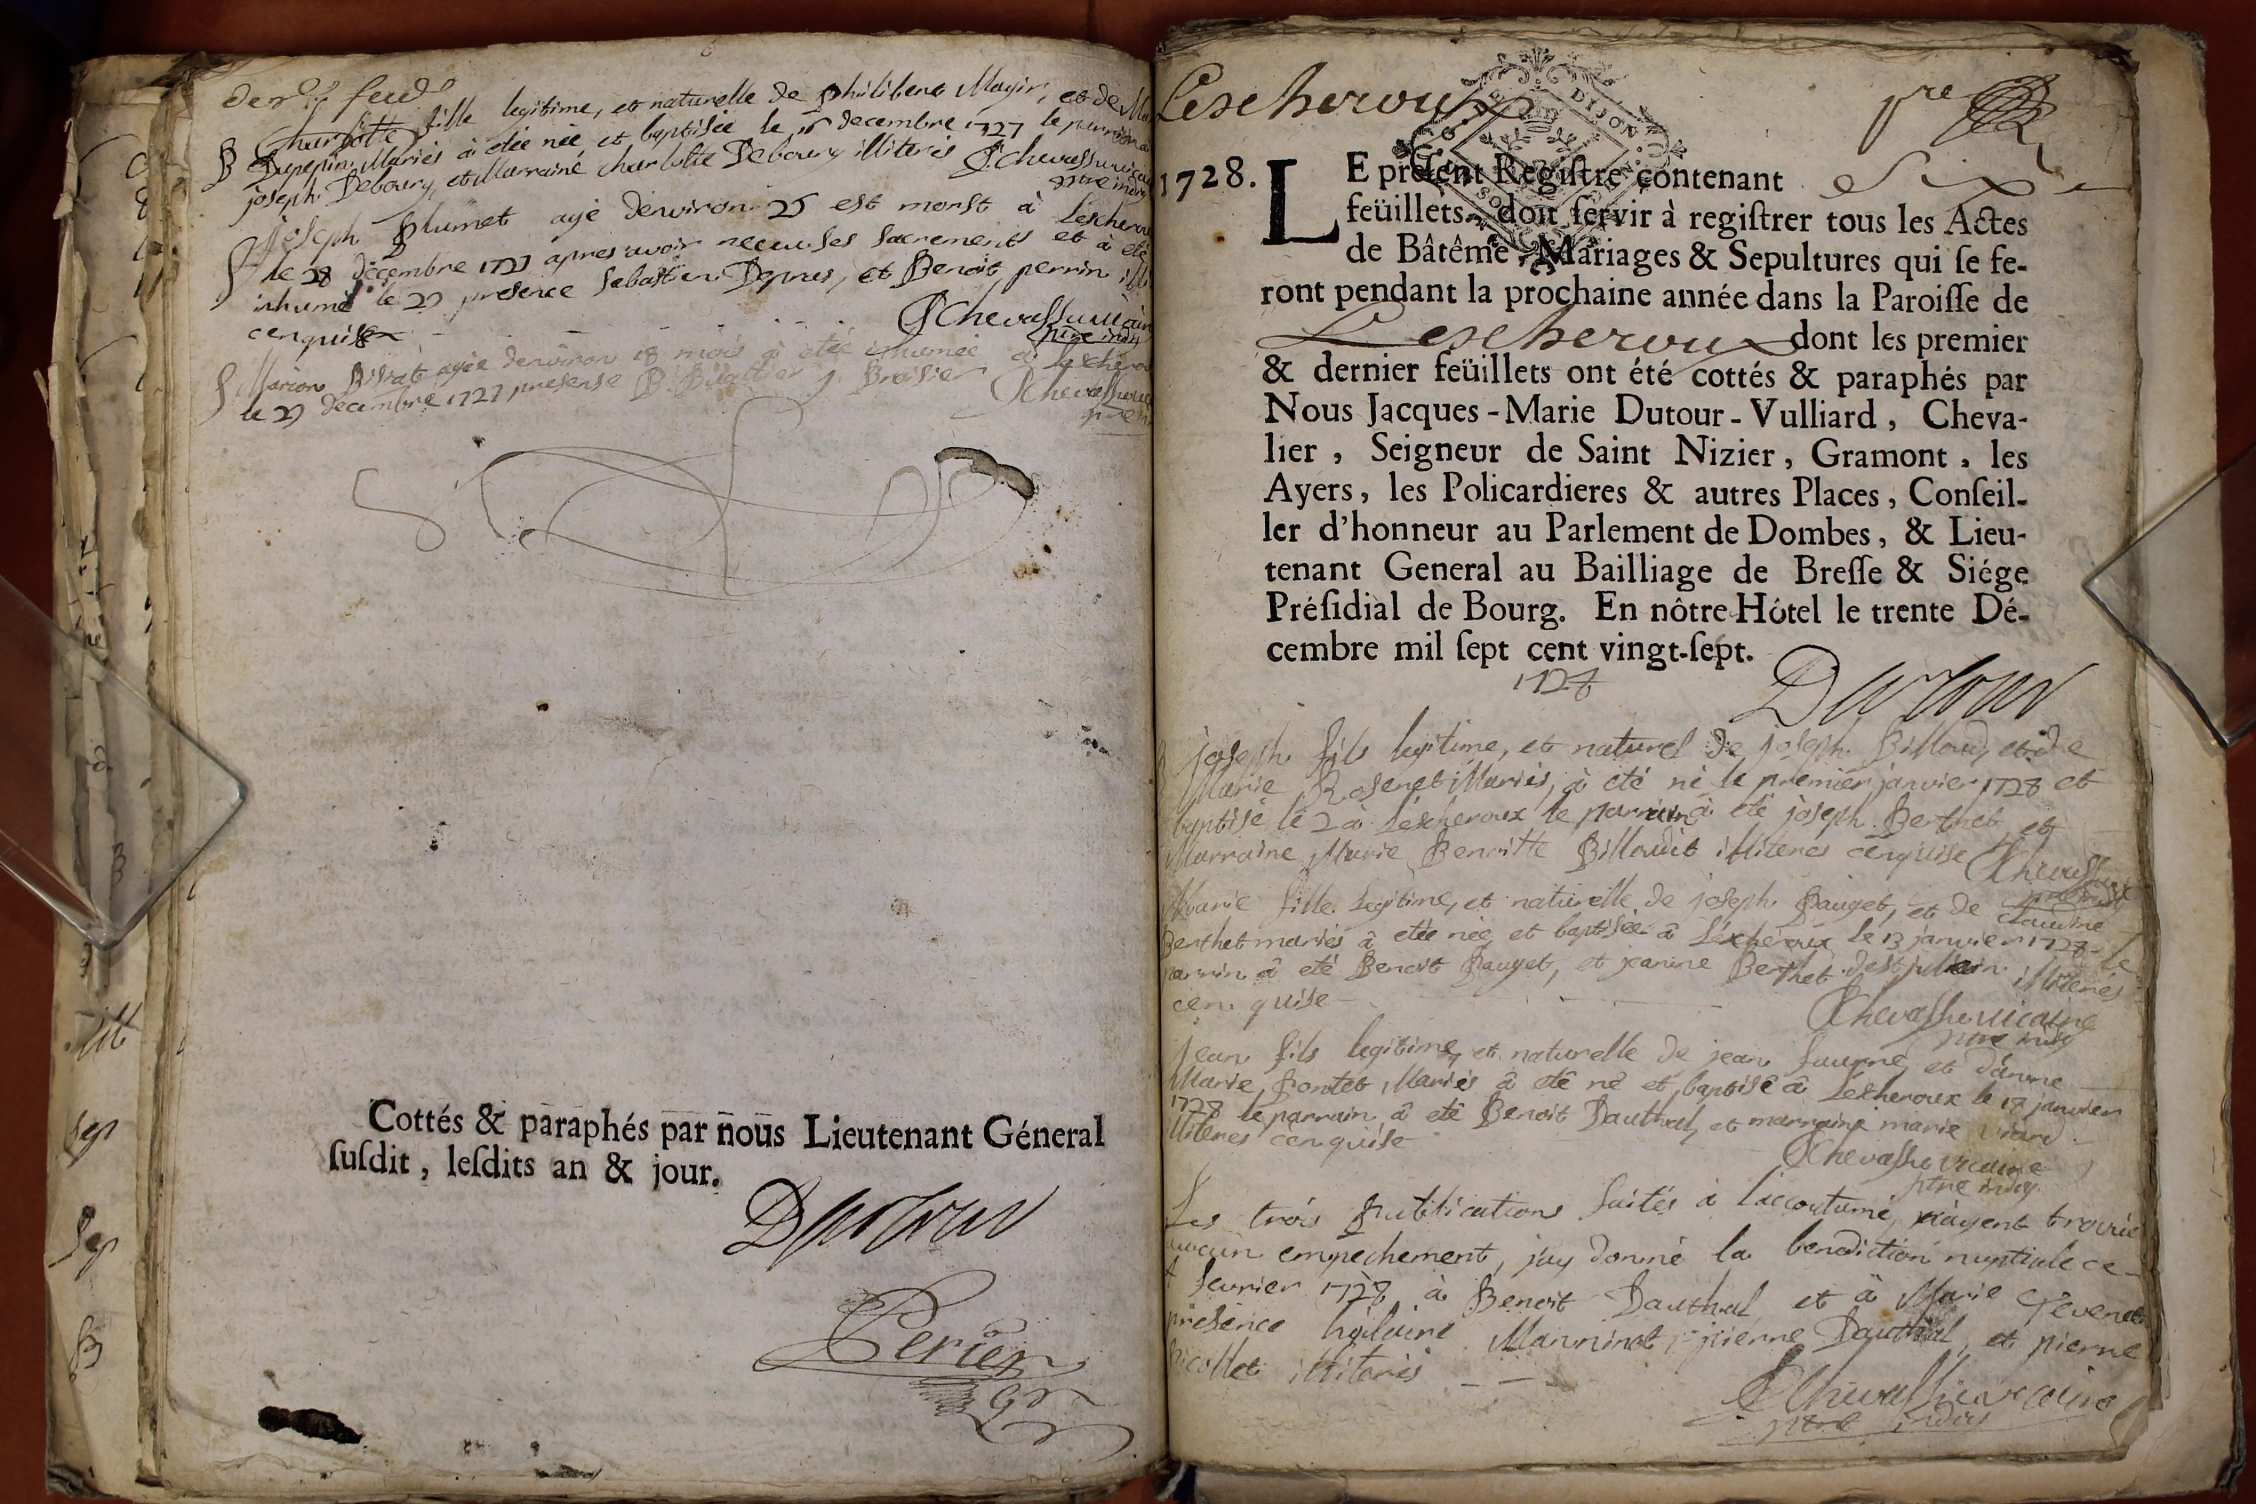 der.
B Charlotte fille legitime, et naturelle de philibert Mayir, et de
Dupepin Mariés à etée née, et baptisée le 16 decembre 1727 le parrain a
joseph Deboury, et Marraine charlotte Deboury illiteres Chevassu vicaire
ptre indig
joseph plumet agé denviron 25 est morst à Lescheroux
le 28 decembre 1727 apres avoir receu ses sacrements et à eté
inhumé le 29 presence Sebastien Depres, et Benoit perrin
cenquise Chevassu vicaire
ptre indig
Marion agée denviron 18 mois à etée inhumée à lescheroux
le 29 decembre 1727 presense B. j. Chevassu
Cottés & paraphés par nous Lieutenant Géneral
susdit, lesdits an & jour.
Dutour
Perier
Gr
DIJON
Lescheroux pre
1728. LE présent Registre contenant Six
feüillets doit servir à registrer tous les Actes
de Bâtême, Mariages & Sepultures qui se fe-
ront pendant la prochaine année dans la Paroisse de
Lescheroux dont les premier
& dernier feüillets ont été cottés & paraphés par
Nous Jacques-Marie Dutour-Vulliard, Cheva-
lier, Seigneur de Saint Nizier, Gramont, les
Ayers, les Policardieres & autres Places, Conseil-
ler d'honneur au Parlement de Dombes, & Lieu-
tenant General au Bailliage de Bresse & Siége
Présidial de Bourg. En nôtre Hôtel le trente Dé-
cembre mil sept cent vingt-sept.
1728 Dutour
joseph fils legitime, et naturel de joseph Billoud, et de
Marie Rosenet Mariés, à eté né le premier janvier 1728 et
baptisé le 2 à Lescheroux le parrain à eté joseph Berthet et
Marraine Marie Benoitte Billoudet illiteres cenquise Chevassu
Marie fille legitime, et naturelle de joseph Pauget, et de Claudine
Berthet mariés â etée née, et baptisée â Léscheroux le 13 janvier 1728 Le
parrain â eté Benoit Pauget, et jeanne Berthet de st julien illiterés
cenquise Chevassu vicaire
ptre indig
Jean fils legitime, et naturelle de jean et d'anne
Marie Pontet Mariés â eté né et baptisé â Léscheroux le 18 janvier
1728 le parrain â eté Benoit Dauthal, et marraine marie
illiteres cenquise Chevassu vicaire
ptre indig.
Les trois Publications faités à laccoutumé, n'ayent trouvé
aucun empechement, j'ay donné la benediction nuptiale ce
4 fevrier 1728 à Benoit Dauthal et â Marie Gevenet
présence hÿlaire Marninet, pierre Dauthal, et pierre
Picollet illiterés
Chevassu vicaire
ptre indig